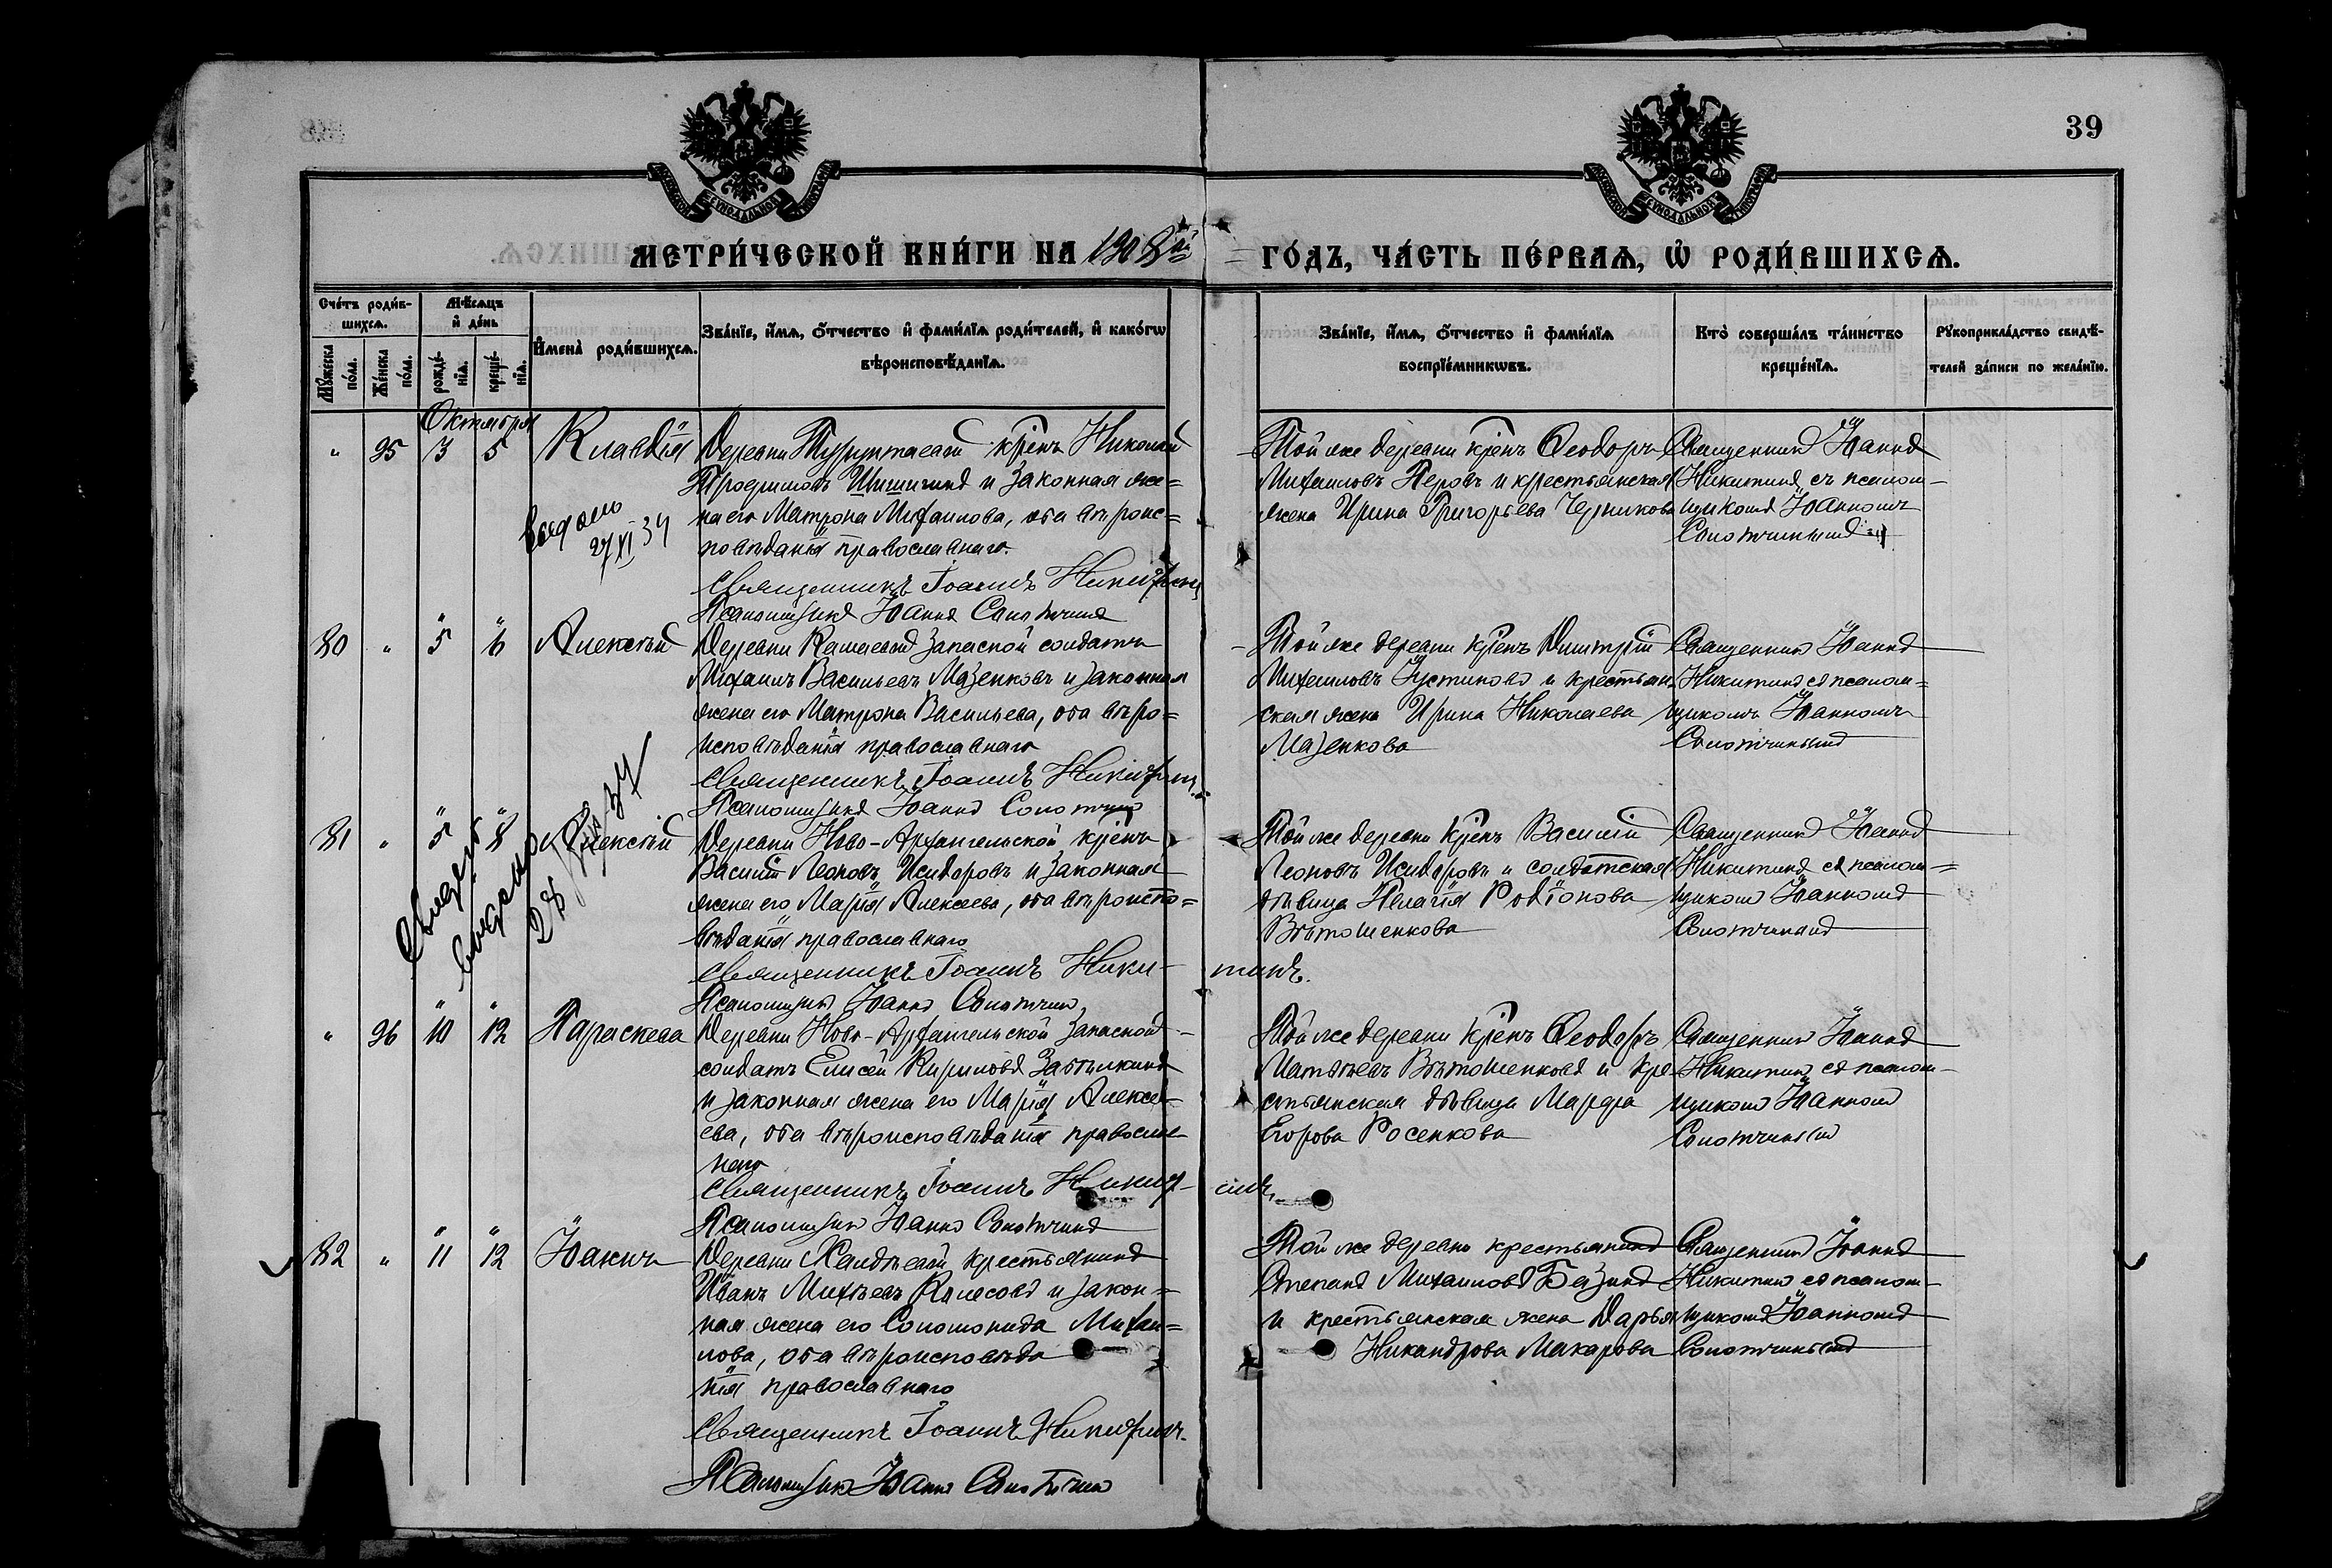 39
МЕТРИ́ЧЕСКОЙ КНИ́ГИ НА 1908й ГО́ДЪ, ЧА́СТЬ ПЕ́РВАѦ, Ѡ҆ РОДИ́ВШИХСѦ.
Сче́тъ роди́в-
шихсѧ.
Мѣ́сѧцъ
и҆ де́нь
И҆мена̀ роди́вшихсѧ.
Зва́нїе, и҆́мѧ, ѻ҆́тчество и҆ фами́лїѧ роди́телей, и҆ како́гѡ
вѣроисповѣ́данїѧ.
Зва́нїе, и҆́мѧ, ѻ҆́тчество и҆ фами́лїѧ
воспрїе́мникѡвъ.
Кто̀ соверша́лъ та́инство
креще́нїѧ.
Рꙋкоприкла́дство свидѣ́-
телей за́писи по жела́нїю.
Мꙋ́жеска
по́ла.
Же́нска
по́ла.
рожде́-
нїѧ.
креще́-
нїѧ.
Октября
" 95 3 5 Клавдія
Деревни Турунтаевой крֽ-нъ Николай
Трофимовъ Шишигинъ и законная же=
на его Матрона Михаилова, оба вѣроис=
повѣданія православнаго.
Священникъ Іоаннъ Никитинъ
Псаломщикъ Іоаннъ Солотчинъ
Той же деревни кр-нъ Ѳеодоръ
Михаиловъ Перовъ и крестьянская
жена Ирина Григорьева Черникова
Священникъ Іоаннъ
Никитинъ съ псалом-
щикомъ Іоанномъ
Солотчинымъ
27/XI 34
80 " 5 6 Алексѣй
Деревни Кашаевой запасной солдатъ
Михаилъ Васильевъ Мазенковъ и законная
жена его Матрона Васильева, оба вѣро=
исповѣданія православнаго
Священникъ Іоаннъ Никитинъ
Псаломщикъ Іоаннъ Солотчинъ
Той же деревни кр-нъ Димитрій
Михаиловъ Густиновъ и крестьян-
ская жена Ирина Николаева
Мазенкова
Священникъ Іоаннъ
Никитинъ съ псалом=
щикомъ Іоанномъ
Солотчинымъ
81 " 5 8 Алексѣй
Деревни Ново-Архангельской кр-нъ
Василій Леоновъ Исидоровъ и законная
жена его Марія Алексеева, оба вѣроиспо=
вѣданія православнаго
Священникъ Іоаннъ Ники-тинъ.
Псаломщикъ Іоаннъ Солотчинъ
Той же деревни кр-нъ Василій
Леоновъ Исидоровъ и солдатская
дѣвица Пелагія Родіонова
Вѣтошенкова
Священникъ Іоаннъ
Никитинъ съ псалом=
щикомъ Іоанномъ
Солотчинымъ
" 96 10 12 Параскева
Деревни Ново-Архангельской запасной
солдатъ Елисей Кириловъ Забѣлкинъ
и законная жена его Марія Алексе-
ева, оба вѣроисповѣданія православ-
наго
Священникъ Іоаннъ Никит-инъ.
Псаломщикъ Іоаннъ Солотчинъ
Той же деревни кр-нъ Ѳеодоръ
Матвѣевъ Вѣтошенковъ и кре-
стьянская дѣвица Марфа
Егорова Росенкова
Священникъ Іоаннъ
Никитинъ съ псалом-
щикомъ Іоанномъ
Солотчинымъ
82 " 11 12 Іоаннъ
Деревни Халдѣевой крестьянинъ
Иванъ Михѣевъ Колесовъ и закон=
ная жена его Соломонида Михаи=
лова, оба вѣроисповѣда
нія православнаго
Священникъ Іоаннъ Никитинъ.
Псаломщикъ Іоаннъ Солотчинъ
Той же деревни крестьянинъ
Степанъ Михаиловъ Базинъ
и крестьянская жена Дарья
Никандрова Макарова
Священникъ Іоаннъ
Никитинъ съ псалом-
щикомъ Іоанномъ
Солотчинымъ